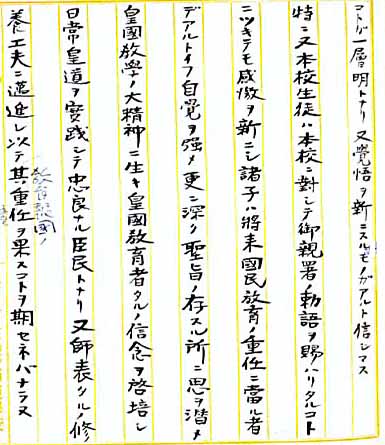 コトガ一層明トナリ又覚悟ヲ新ニスルモノガアルト信シマス
特ニ又本校生徒ハ本校ニ對シテ御親署ノ勅語ヲ賜ハリタルコト
ニツキテモ感激ヲ新ニシ諸子ハ将来國民教育ノ重任ニ當ル者
デアルトイフ自覚ヲ強メ更ニ深ク聖旨ノ存スル所ニ思ヲ潜メ
皇國教學ノ大精神ニ生キ皇國教育者タルノ信念ヲ啓培シ
日常皇道ヲ実践シテ忠良ナル臣民トナリ又師表タルノ修
教育報國ノ
養工夫ニ邁進シ以テ其重任ヲ果スコトヲ期セネバナラヌ